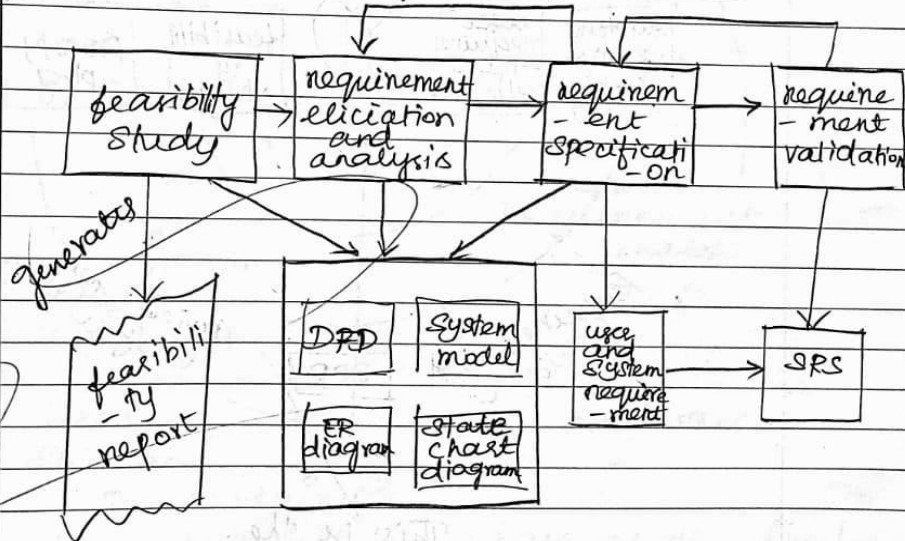 feasibility
study
requirement
eliciation
and
analysis
requirem
- ent
specificati
- on
require
- ment
validation
generates
feasibili
- ty
report
DFD
System
model
ER
diagram
State
chart
diagram
user
and
system
require
- ment
SRS